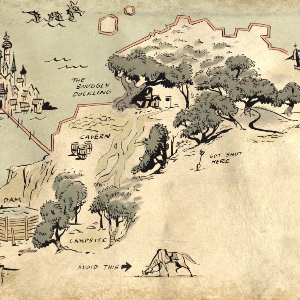 THE
SNUGGLY
DUCKLING
CAVERN
GOT SHOT
HERE
DAM
CAMPSITE
AVOID THIS